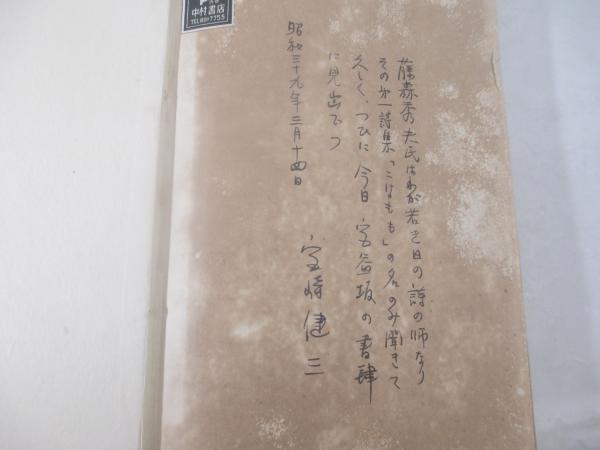 藤森秀夫氏はわが若き日の詩の師なり
その第一詩集「こけもも」の名のみ聞きて
久しく、つひに今日宮益坂の書肆
に見出でつ
昭和三十九年三月十四日
宮崎健三
中村書店
TEL 7755